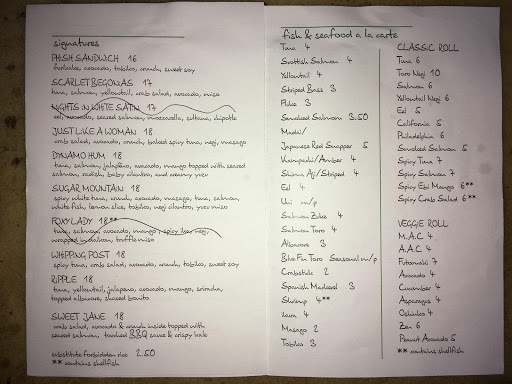 signatures
PHISH SANDWICH 16
furikake, avocado, tobiko, crunch, sweet soy
SCARLET BEGONIAS 17
tuna, salmon, yellowtail, crab salad, avocado, miso
NIGHTS IN WHITE SATIN 17
eel, avocado, seared salmon, mozzarella, sultana, chipotle
JUST LIKE A WOMAN 18
crab salad, avocado, crunch, baked spicy tuna, negi, masago
DYNAMO HUM 18
tuna, salmon, jalapeno, avocado, mango topped with seared
salmon, radish, baby cilantro, and creamy yuzu
SUGAR MOUNTAIN 18
spicy white tuna, crunch, avocado, masago, tuna, salmon,
white fish, lemon slice, tobiko, negi cilantro, yuzu miso
FOXY LADY 18**
tuna, salmon, avocado, mango, spicy negi,
wrapped in daikon, truffle miso
WHIPPING POST 18
spicy tuna, crab salad, avocado, crunch, tobiko, sweet soy
RIPPLE 18
tuna, yellowtail, jalapeno, avocado, mango, sriracha,
topped albacore, shaved bonito
SWEET JANE 18
crab salad, avocado & crunch inside topped with
seared salmon, torched BBQ sauce & crispy kale
substitute forbidden rice 2.50
** contains shellfish
fish & seafood a la carte
Tuna 4
Scottish Salmon 4
Yellowtail 4
Striped Bass 3
Fluke 3
Smoked Salmon 3.50
Madai/
Japanese Red Snapper 5
Kampachi/Amber 4
Shima Aji/Striped 4
Eel 4
Uni m/p
Salmon Zuke 4
Salmon Toro 4
Albacore 3
Blue Fin Toro Seasonal m/p
Crabstick 2
Spanish Mackerel 3
Shrimp 4**
Ikura 4
Masago 2
Tobiko 3
CLASSIC ROLL
Tuna 6
Toro Negi 10
Salmon 6
Yellowtail Negi 6
Eel 5
California 5
Philadelphia 6
Smoked Salmon 5
Spicy Tuna 7
Spicy Salmon 7
Spicy Ebi Mango 6**
Spicy Crab Salad 6**
VEGGIE ROLL
M.A.C 4
A.A.C 4
Futomaki 7
Avocado 4
Cucumber 4
Asparagus 4
Oshinko 4
Zen 6
Peanut Avocado 5
** contains shellfish